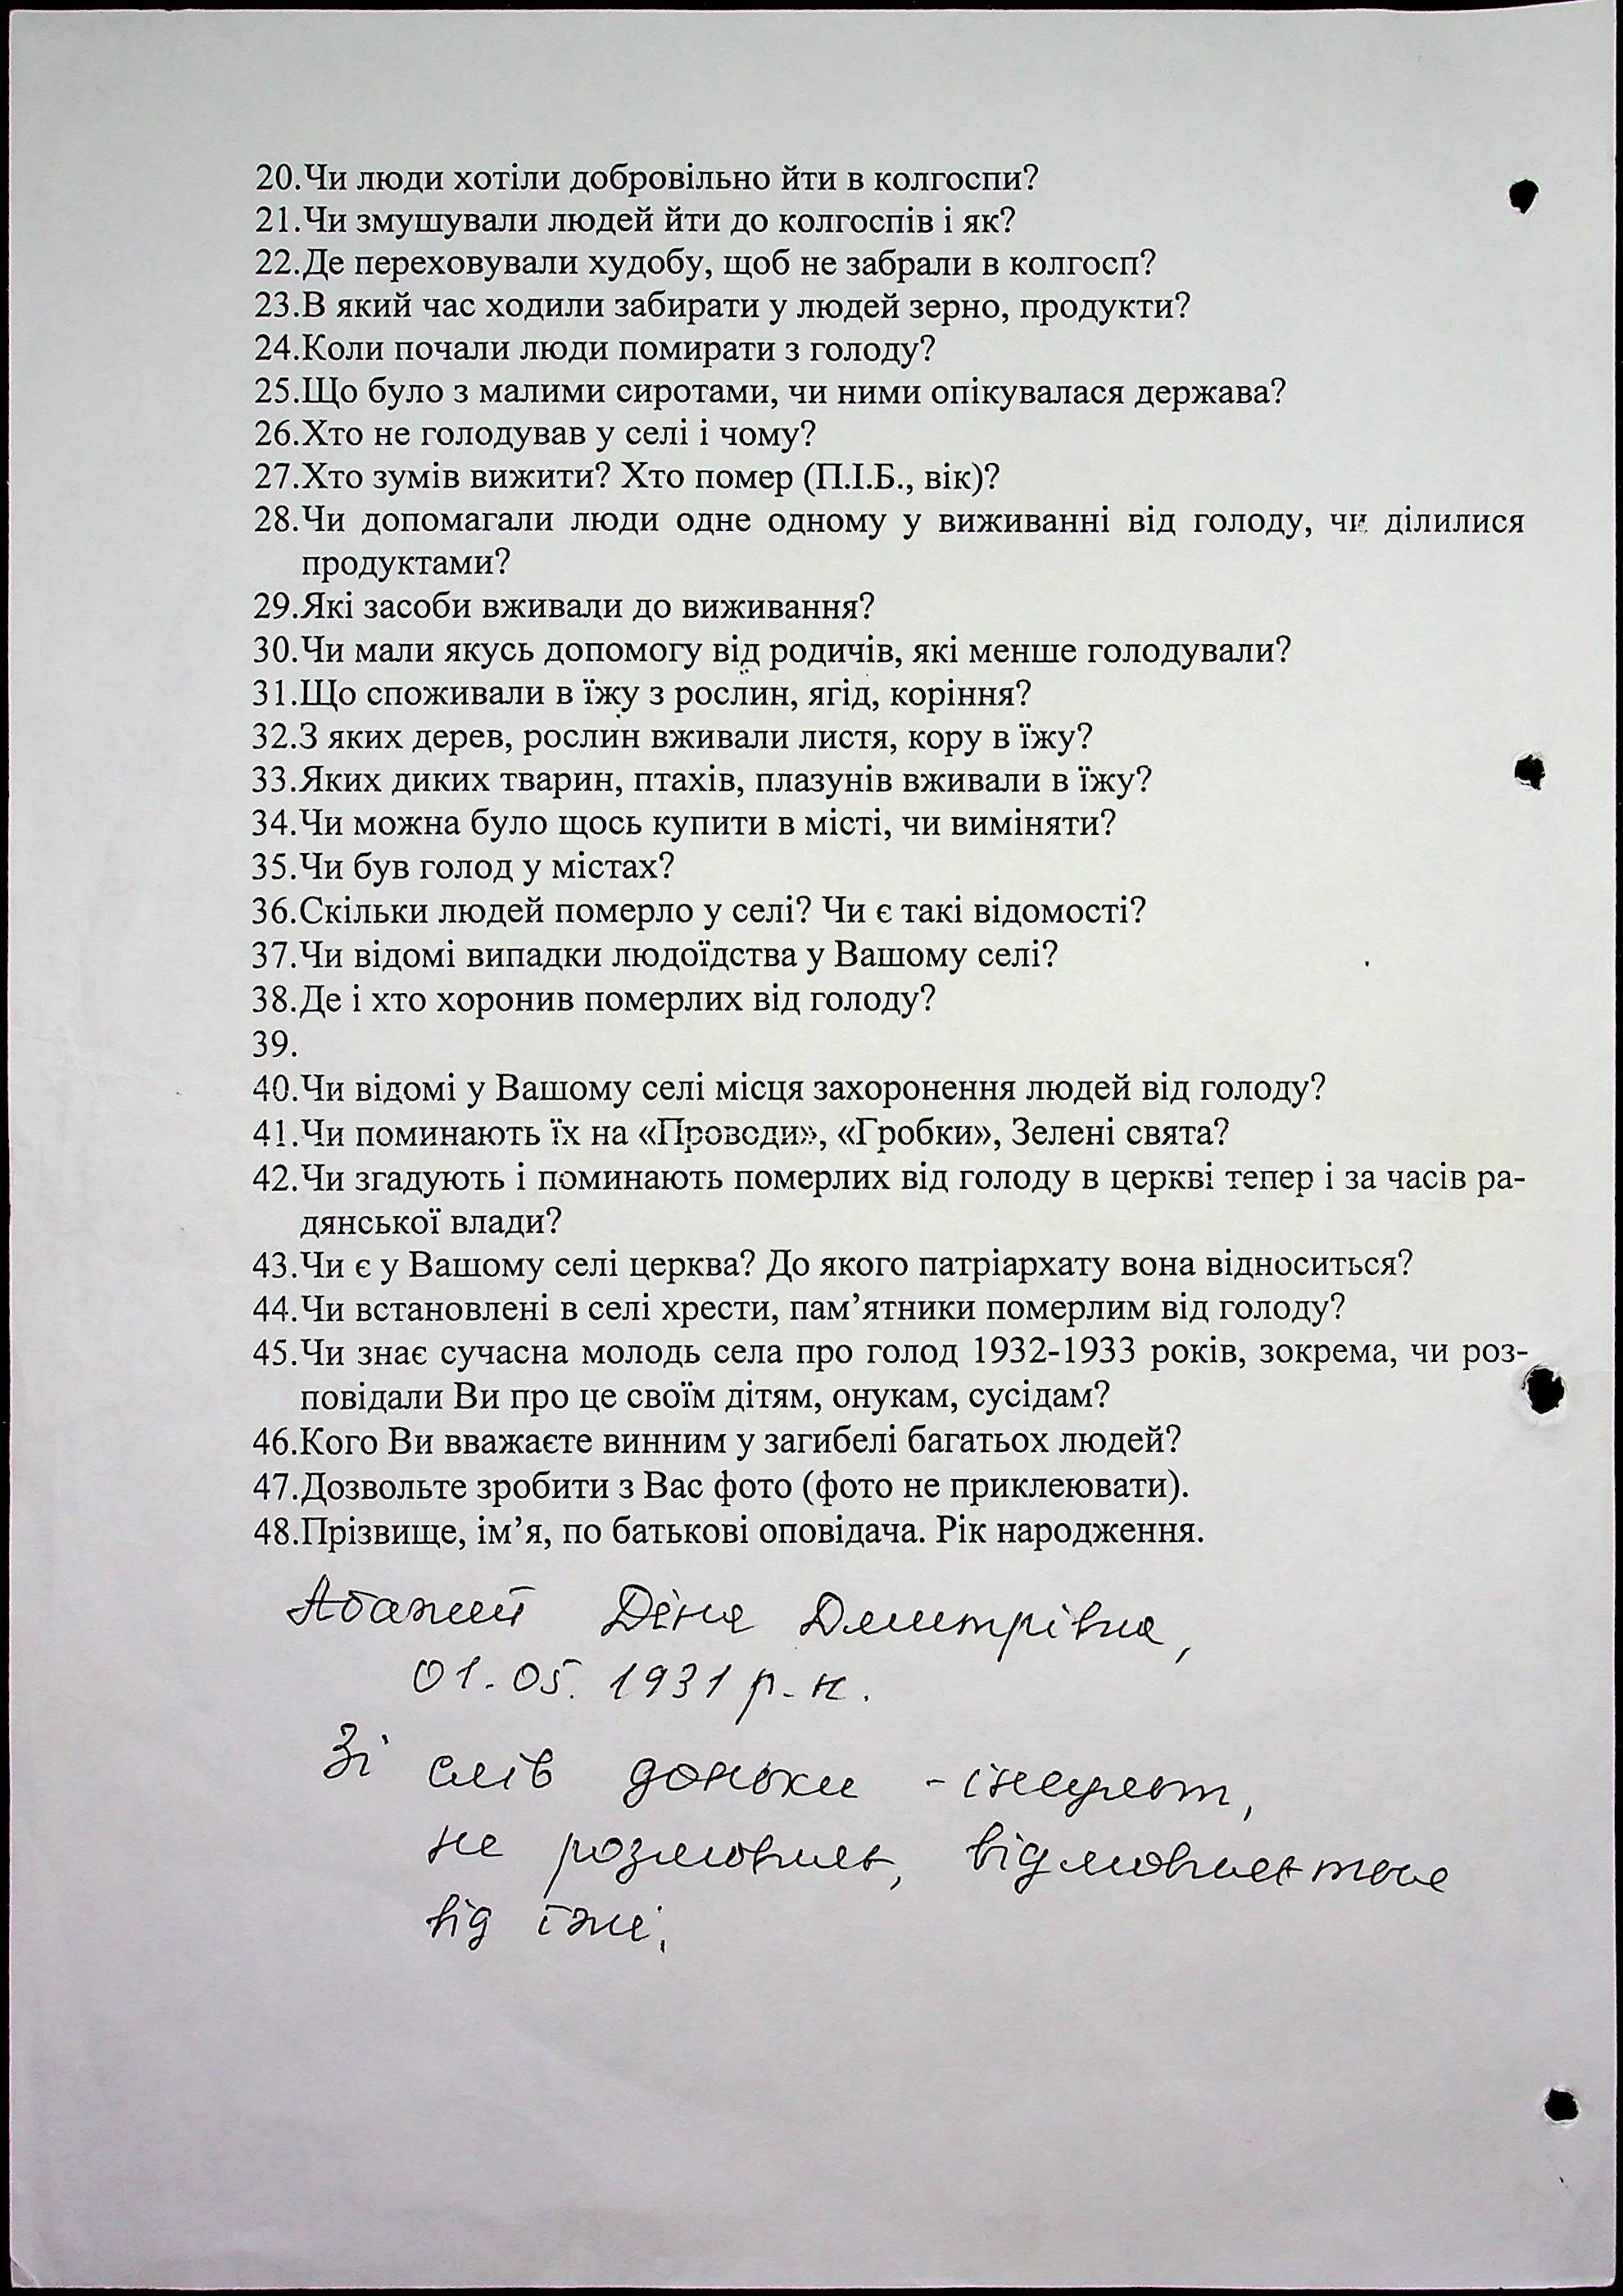 20.Чи люди хотіли добровільно йти в колгоспи?
21.Чи змушували людей йти до колгоспів і як?
22.Де переховували худобу, щоб не забрали в колгосп?
23.В який час ходили забирати у людей зерно, продукти?
24.Коли почали люди помирати з голоду?
25.Що було з малими сиротами, чи ними опікувалася держава?
26.Хто не голодував у селі і чому?
27.Хто зумів вижити? Хто помер (П.І.Б., вік)?
28.Чи допомагали люди одне одному у виживанні від голоду, чи ділилися
продуктами?
29.Які засоби вживали до виживання?
30.Чи мали якусь допомогу від родичів, які менше голодували?
31.Що споживали в їжу з рослин, ягід, коріння?
32.З яких дерев, рослин вживали листя, кору в їжу?
33.Яких диких тварин, птахів, плазунів вживали в їжу?
34.Чи можна було щось купити в місті, чи виміняти?
35.Чи був голод у містах?
36.Скільки людей померло у селі? Чи є такі відомості?
37.Чи відомі випадки людоїдства у Вашому селі?
38.Де і хто хоронив померлих від голоду?
39.
40.Чи відомі у Вашому селі місця захоронення людей від голоду?
41.Чи поминають їх на «Проводи», «Гробки», Зелені свята?
42.Чи згадують і поминають померлих від голоду в церкві тепер і за часів ра-
дянської влади?
43.Чи є у Вашому селі церква? До якого патріархату вона відноситься?
44.Чи встановлені в селі хрести, пам’ятники померлим від голоду?
45.Чи знає сучасна молодь села про голод 1932-1933 років, зокрема, чи роз-
повідали Ви про це своїм дітям, онукам, сусідам?
46.Кого Ви вважаєте винним у загибелі багатьох людей?
47.Дозвольте зробити з Вас фото (фото не приклеювати).
48.Прізвище, ім’я, по батькові оповідача. Рік народження.
Діна Дмитрівна,
01.05.1931 р.н.
Зі слів доньки - інсульт,
не розмовляє, відмовляється
від їжі.